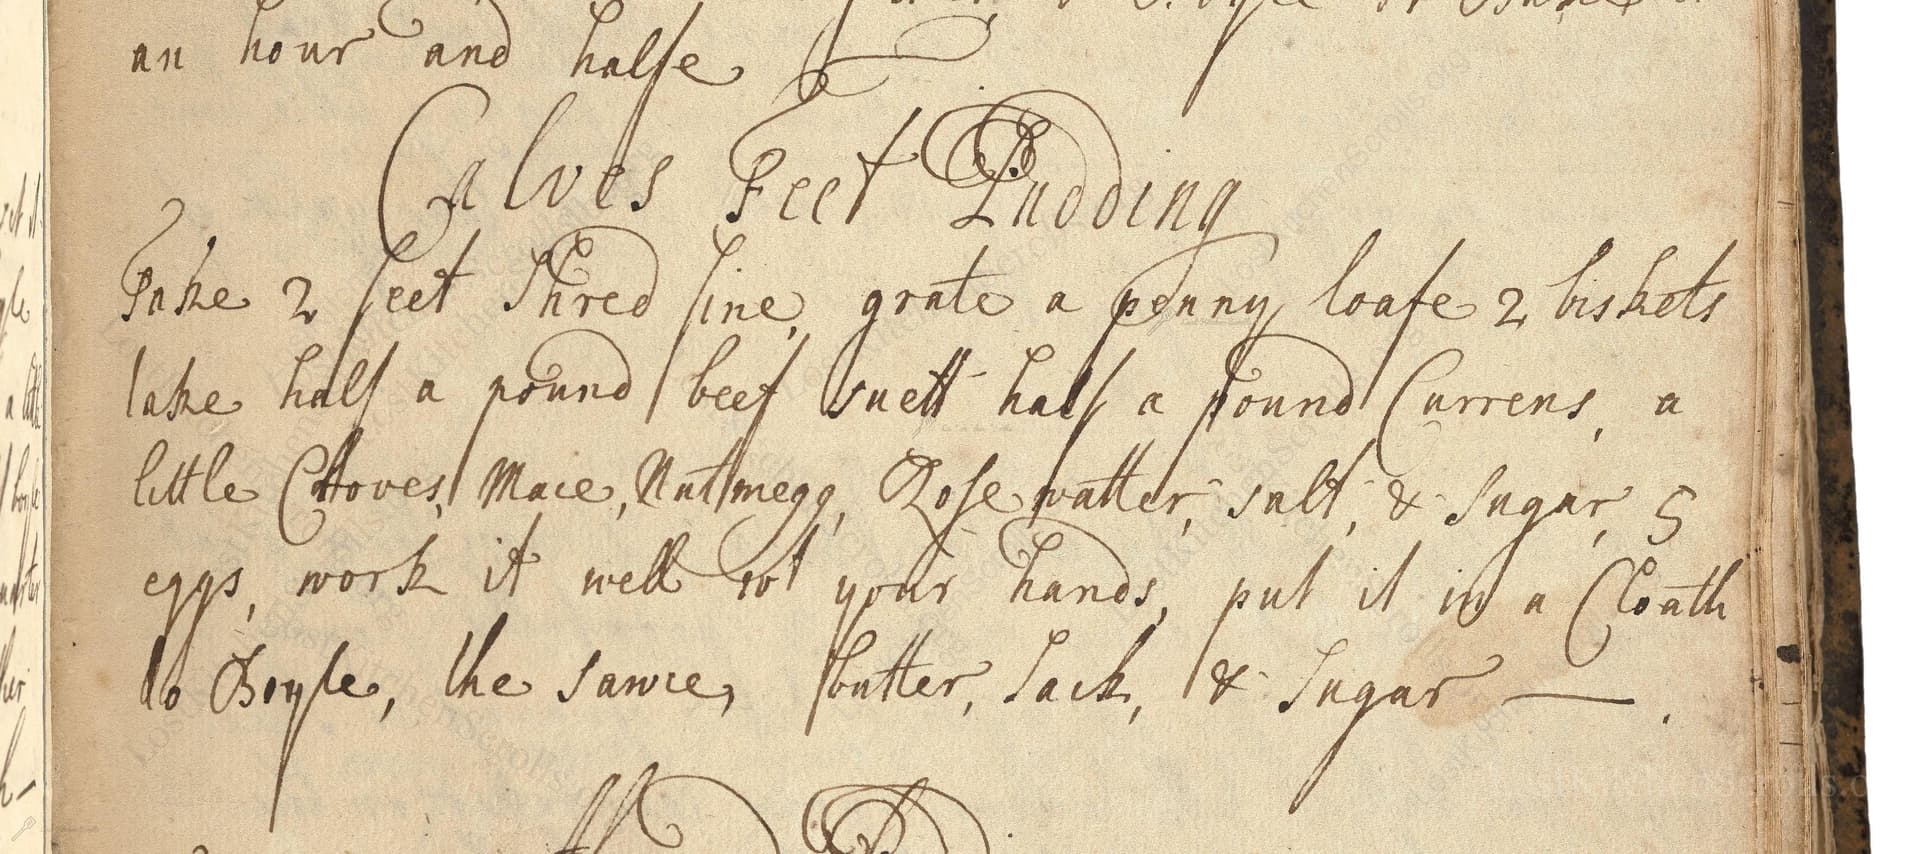 an hour and halfe
Calves Feet Pudding
Take 2 feet Shred fine, grate a penny loafe 2 biskets
take half a pound beef suett half a pound Currens, a
little Cloves, Mace, Nutmegg, Rose watter, salt, & Sugar, 5
eggs, work it well wt your hands, put it in a Cloath
to Boyle, the sawce, butter, Sack, & Sugar — .